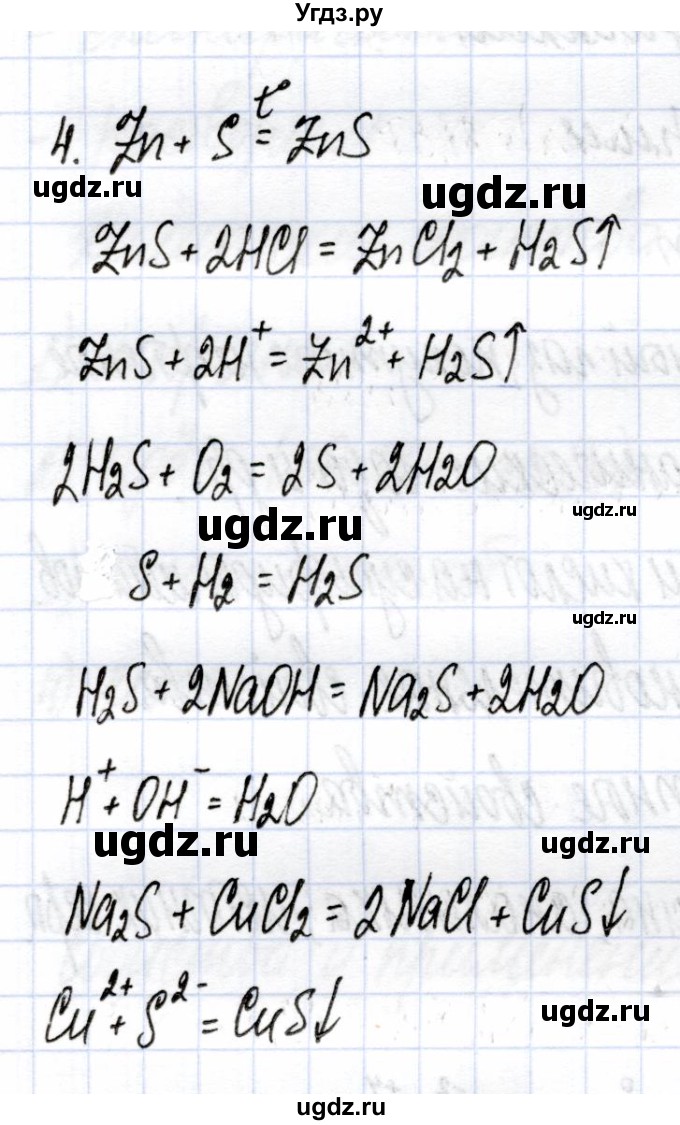 Угдз.ру
4. Zn + S =^t° ZnS
ugdz.ru
ugdz.ru
ZnS + 2HCl = ZnCl₂ + H₂S↑
ZnS + 2H⁺ = Zn²⁺ + H₂S↑
2H₂S + O₂ = 2S + 2H₂O
ugdz.ru
ugdz.ru
S + H₂ = H₂S
ugdz.ru
H₂S + 2NaOH = Na₂S + 2H₂O
H⁺ + OH⁻ = H₂O
ugdz.ru
ugdz.ru
Na₂S + CuCl₂ = 2NaCl + CuS↓
Cu²⁺ + S²⁻ = CuS↓
ugdz.ru
ugdz.ru